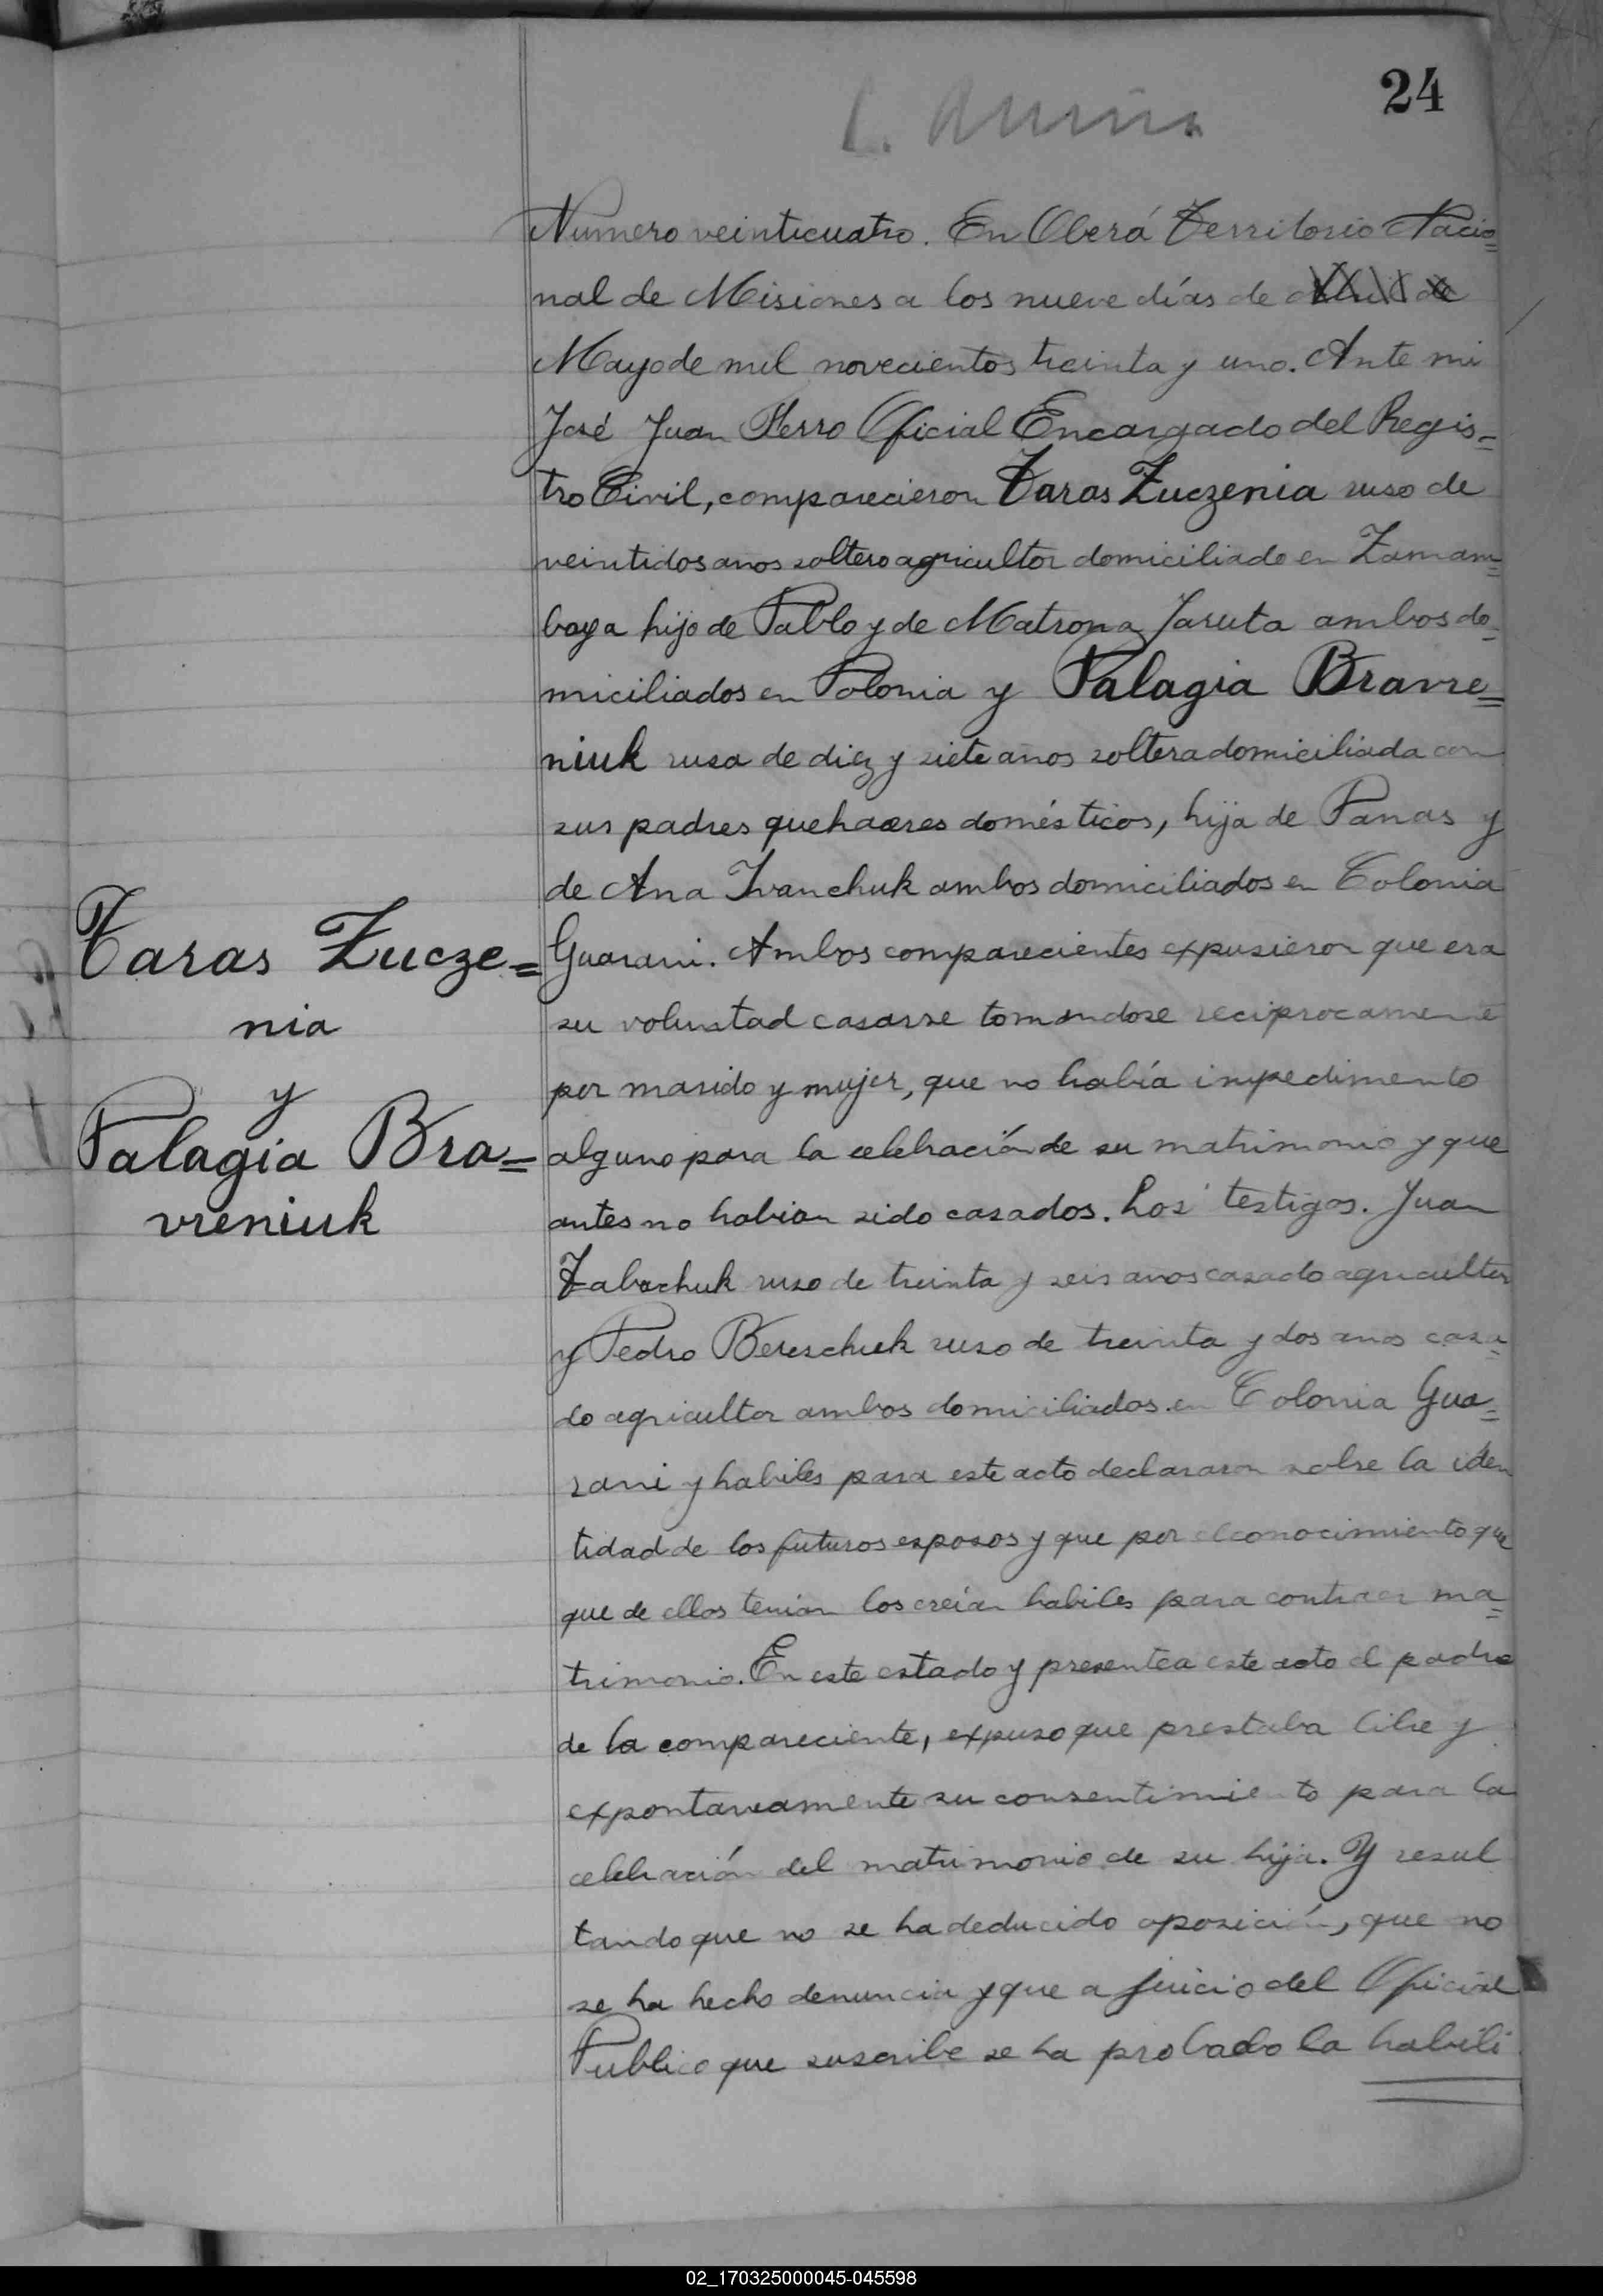 24
Numero veinticuatro. En Oberá Territorio Nacio=
nal de Misiones a los nueve días de
Mayo de mil novecientos treinta y uno. Ante mi
José Juan Ferro Oficial Encargado del Regis=
tro Civil, comparecieron Taras Zuczenia ruso de
veintidos años soltero agricultor domiciliado en Zamam=
baya hijo de Pablo y de Matrona Jaruta ambos do=
miciliados en Polonia y Palagia Bravre=
niuk rusa de diez y siete años soltera domiciliada con
sus padres quehaceres domésticos, hija de Panas y
de Ana Ivanchuk ambos domiciliados en Colonia
Guarani. Ambos comparecientes expusieron que era
su voluntad casarse tomandose reciprocamente
por marido y mujer, que no había impedimento
alguno para la celebración de su matrimonio y que
antes no habian sido casados. Los testigos. Juan
Tabachuk ruso de treinta y seis anos casado agricultor
y Pedro Bereschuk ruso de treinta y dos anos casa=
do agricultor ambos domiciliados en Colonia Gua=
rani y habiles para este acto declararon sobre la iden
tidad de los futuros esposos y que por el conocimiento que
que de ellos tenian los creían habiles para contraer ma=
trimonio. En este estado y presente a este acto el padre
de la compareciente, expuso que prestaba libre y
expontaneamente su consentimiento para la
celebración del matrimonio de su hija. Y resul
tando que no se ha deducido oposición, que no
se ha hecho denuncia y que a juicio del Oficial
Publico que suscribe se ha probado la habili
Taras Zucze=
nia
y
Palagia Bra=
vreniuk
02_170325000045-045598